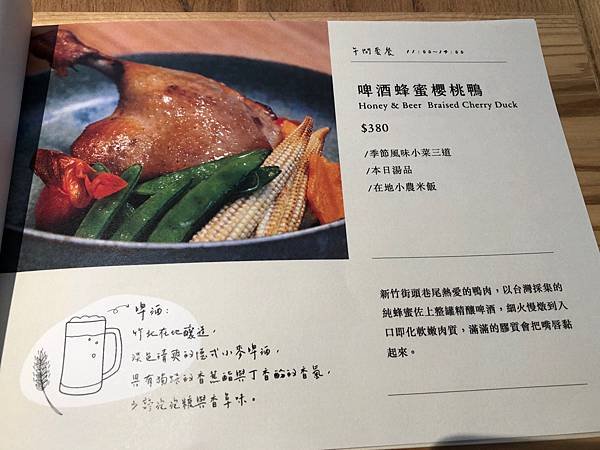 午間套餐 11:00~14:00
啤酒蜂蜜櫻桃鴨
Honey & Beer Braised Cherry Duck
$380
/季節風味小菜三道
/本日湯品
/在地小農米飯
新竹街頭巷尾熱愛的鴨肉，以台灣採集的
純蜂蜜佐上整罐精釀啤酒，細火慢燉到入
口即化軟嫩肉質，滿滿的膠質會把嘴唇黏
起來。
啤酒：
竹北在地釀造，
淡色清爽的德式小麥啤酒，
具有獨特的香蕉酯與丁香酚的香氣，
少許泡泡糖與香草味。